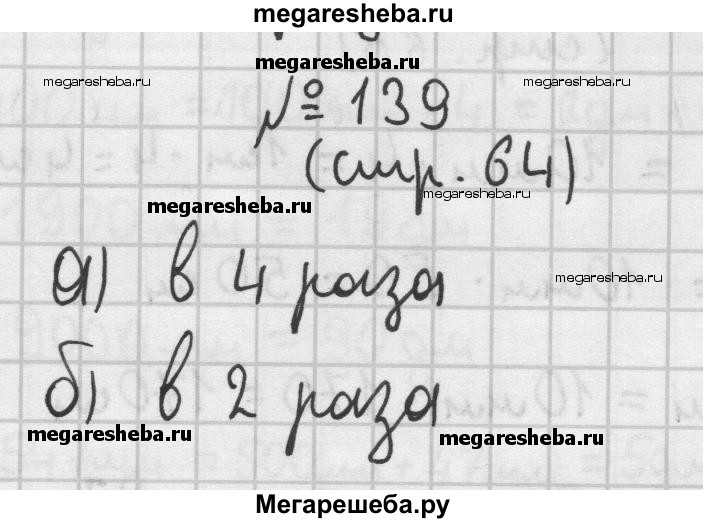 megaresheba.ru
megaresheba.ru
megaresheba.ru
megaresheba.ru
№ 139
(стр. 64)
megaresheba.ru
megaresheba.ru
а) в 4 раза
megaresheba.ru
б) в 2 раза
megaresheba.ru
megaresheba.ru
Мегарешеба.ру